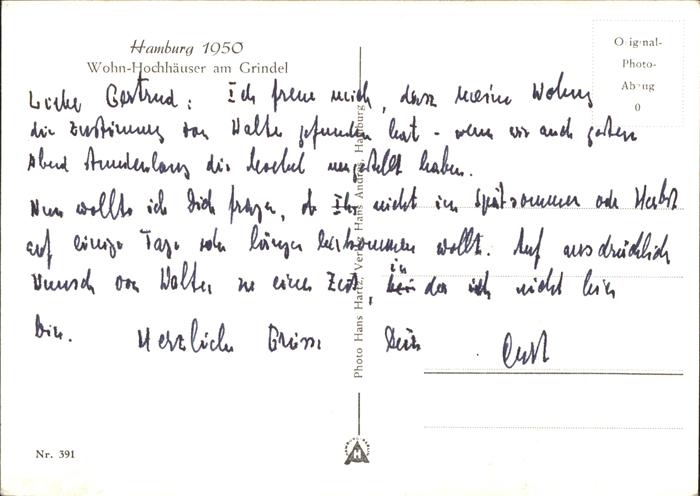 Hamburg 1950
Wohn-Hochhäuser am Grindel
Original-
Photo-
Abzug
0
Liebe Gertrud! Ich freue mich, dass meine Wohnung
die Zustimmung von Walter gefunden hat - wenn wir auch gestern
Abend stundenlang die Moebel umgestellt haben.
Nun wollte ich Dich fragen, ob Ihr nicht im Spätsommer oder Herbst
auf einige Tage oder länger herkommen wollt. Auf ausdrücklich
Wunsch von Walter zu einer Zeit, in der ich nicht hier
bin. Herzliche Grüsse Dein
Photo Hans Hartz, Verlag Hans Andres, Hamburg
Nr. 391